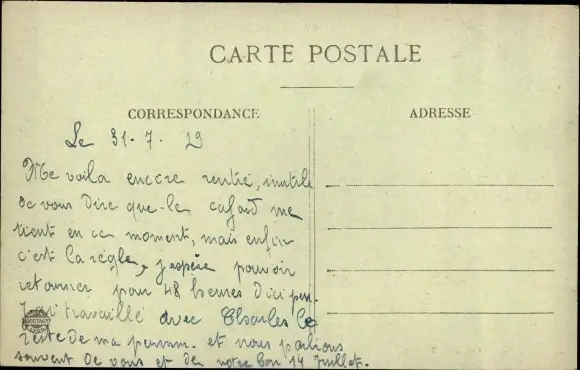 CARTE POSTALE
CORRESPONDANCE
ADRESSE
Le 31-7. 29
Me voila encore rentré, inutile
de vous dire que le cafard me
tient en ce moment, mais enfin
c'est la règle, j'espère pouvoir
retourner pour 48 heures d'ici peu.
J'ai travaillé avec Charles le
reste de ma permm. et nous parlions
souvent de vous et de notre bon 14 Juillet.